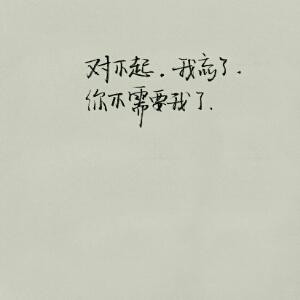 对不起．我忘了．
你不需要我了．